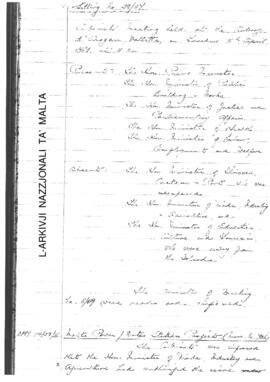 Sitting No. 29/57.
A Cabinet meeting held at the Auberge
d'Aragon, Valletta, on
at 11 a.m.
Present: The Hon. Prime Minister
The Hon. Minister of Public
Building & Works
The Hon. Minister of Justice and
Parliamentary Affairs
The Hon. Minister of Health
The Hon. Minister of Labour,
Employment and Welfare
Absent: The Hon. Minister of Finance,
Customs & Port who was
indisposed
The Hon. Minister of Trade, Industry
& Agriculture and
The Hon. Minister of Education,
Culture and Tourism
who were away from
the Island.
The minutes of Meeting
No. were read and confirmed.
The Cabinet was informed
that the Hon. Minister of Trade, Industry and
Agriculture had
L-ARKIVJI NAZZJONALI TA' MALTA